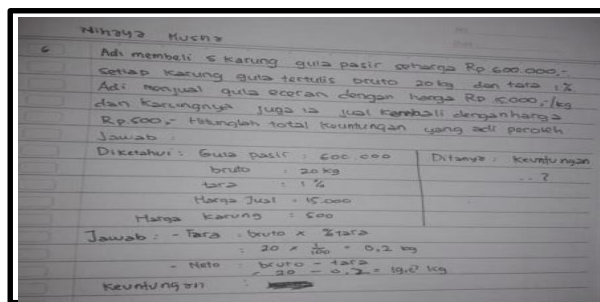 Nihaya Husna
6 Adi membeli 5 karung gula pasir seharga Rp 600.000,-
Setiap karung gula tertulis bruto 20 kg dan tara 1%
Adi menjual gula eceran dengan harga Rp 15.000,-/kg
dan karungnya juga ia jual kembali dengan harga
Rp.500,- Hitunglah total keuntungan yang adi peroleh
Jawab :
Diketahui : Gula pasir : 600.000
Ditanya : keuntungan
bruto : 20 kg
.. ?
tara : 1 %
Harga Jual : 15.000
Harga karung : 500
Jawab : - Tara : bruto x % tara
: 20 x 1/100 = 0,2 kg
- Neto : bruto - tara
= 20 - 0,2 = 19,8 kg
Keuntungan :